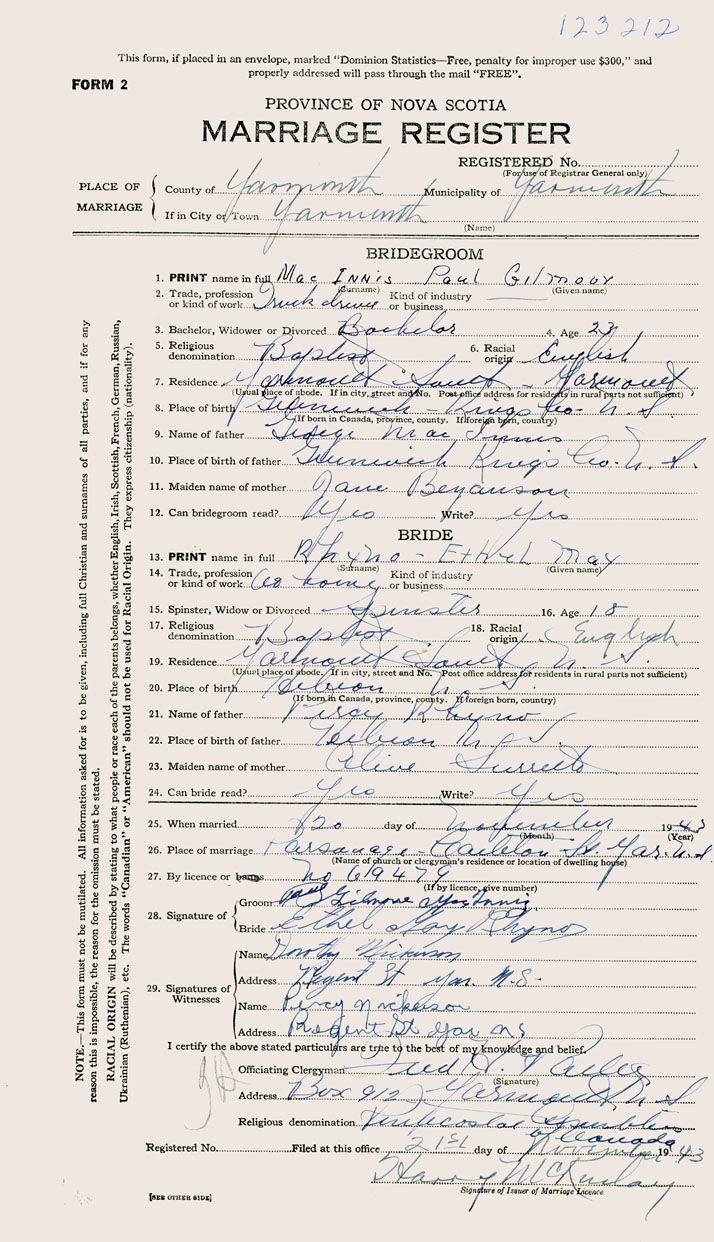 123212
This form, if placed in an envelope, marked "Dominion Statistics—Free, penalty for improper use $300," and
properly addressed will pass through the mail "FREE".
FORM 2
PROVINCE OF NOVA SCOTIA
MARRIAGE REGISTER
REGISTERED No.
(For use of Registrar General only)
PLACE OF MARRIAGE
County of Yarmouth Municipality of Yarmouth
If in City or Town Yarmouth
(Name)
BRIDEGROOM
1. PRINT name in full Mac Innis Paul Gilmour
(Surname) (Given name)
2. Trade, profession or kind of work Truck driver Kind of industry or business
3. Bachelor, Widower or Divorced Bachelor 4. Age 23
5. Religious denomination Baptist 6. Racial origin English
7. Residence Yarmouth South - Yarmouth
(Usual place of abode. If in city, street and No. Post office address for residents in rural parts not sufficient)
8. Place of birth Greenwich - Kings Co. N. S.
(If born in Canada, province, county. If foreign born, country)
9. Name of father George Mac Innis
10. Place of birth of father Greenwich Kings Co. N. S.
11. Maiden name of mother Jane Benanson
12. Can bridegroom read? Yes Write? Yes
BRIDE
13. PRINT name in full Rhyno - Ethel May
(Surname) (Given name)
14. Trade, profession or kind of work At home Kind of industry or business
15. Spinster, Widow or Divorced Spinster 16. Age 18
17. Religious denomination Baptist 18. Racial origin English
19. Residence Yarmouth South N. S.
(Usual place of abode. If in city, street and No. Post office address for residents in rural parts not sufficient)
20. Place of birth Hebron N. S.
(If born in Canada, province, county. If foreign born, country)
21. Name of father Percy Rhyno
22. Place of birth of father Hebron N. S.
23. Maiden name of mother Olive Surrett
24. Can bride read? Yes Write? Yes
25. When married 20 day of November 1943
(Month) (Year)
26. Place of marriage Parsonage - Carleton St. Yar. N. S.
(Name of church or clergyman's residence or location of dwelling house)
27. By licence or banns No 619479
(If by licence, give number)
28. Signature of
Groom Paul Gilmore MacInnis
Bride Ethel May Rhyno
29. Signatures of Witnesses
Name Dorothy Nickerson
Address Regent St Yar. N.S.
Name Percy Nickerson
Address Regent St Yar N S
I certify the above stated particulars are true to the best of my knowledge and belief.
Officiating Clergyman Fred H.
(Signature)
Address Box 912 Yarmouth N. S
Religious denomination Pentecostal Assemblies
of Canada
Registered No. Filed at this office 21st day of November 1943
Harry McKinlay
Signature of Issuer of Marriage Licence
[SEE OTHER SIDE]
NOTE.—This form must not be mutilated. All information asked for is to be given, including full Christian and surnames of all parties, and if for any
reason this is impossible, the reason for the omission must be stated.
RACIAL ORIGIN will be described by stating to what people or race each of the parents belongs, whether English, Irish, Scottish, French, German, Russian,
Ukrainian (Ruthenian), etc. The words "Canadian" or "American" should not be used for Racial Origin. They express citizenship (nationality).